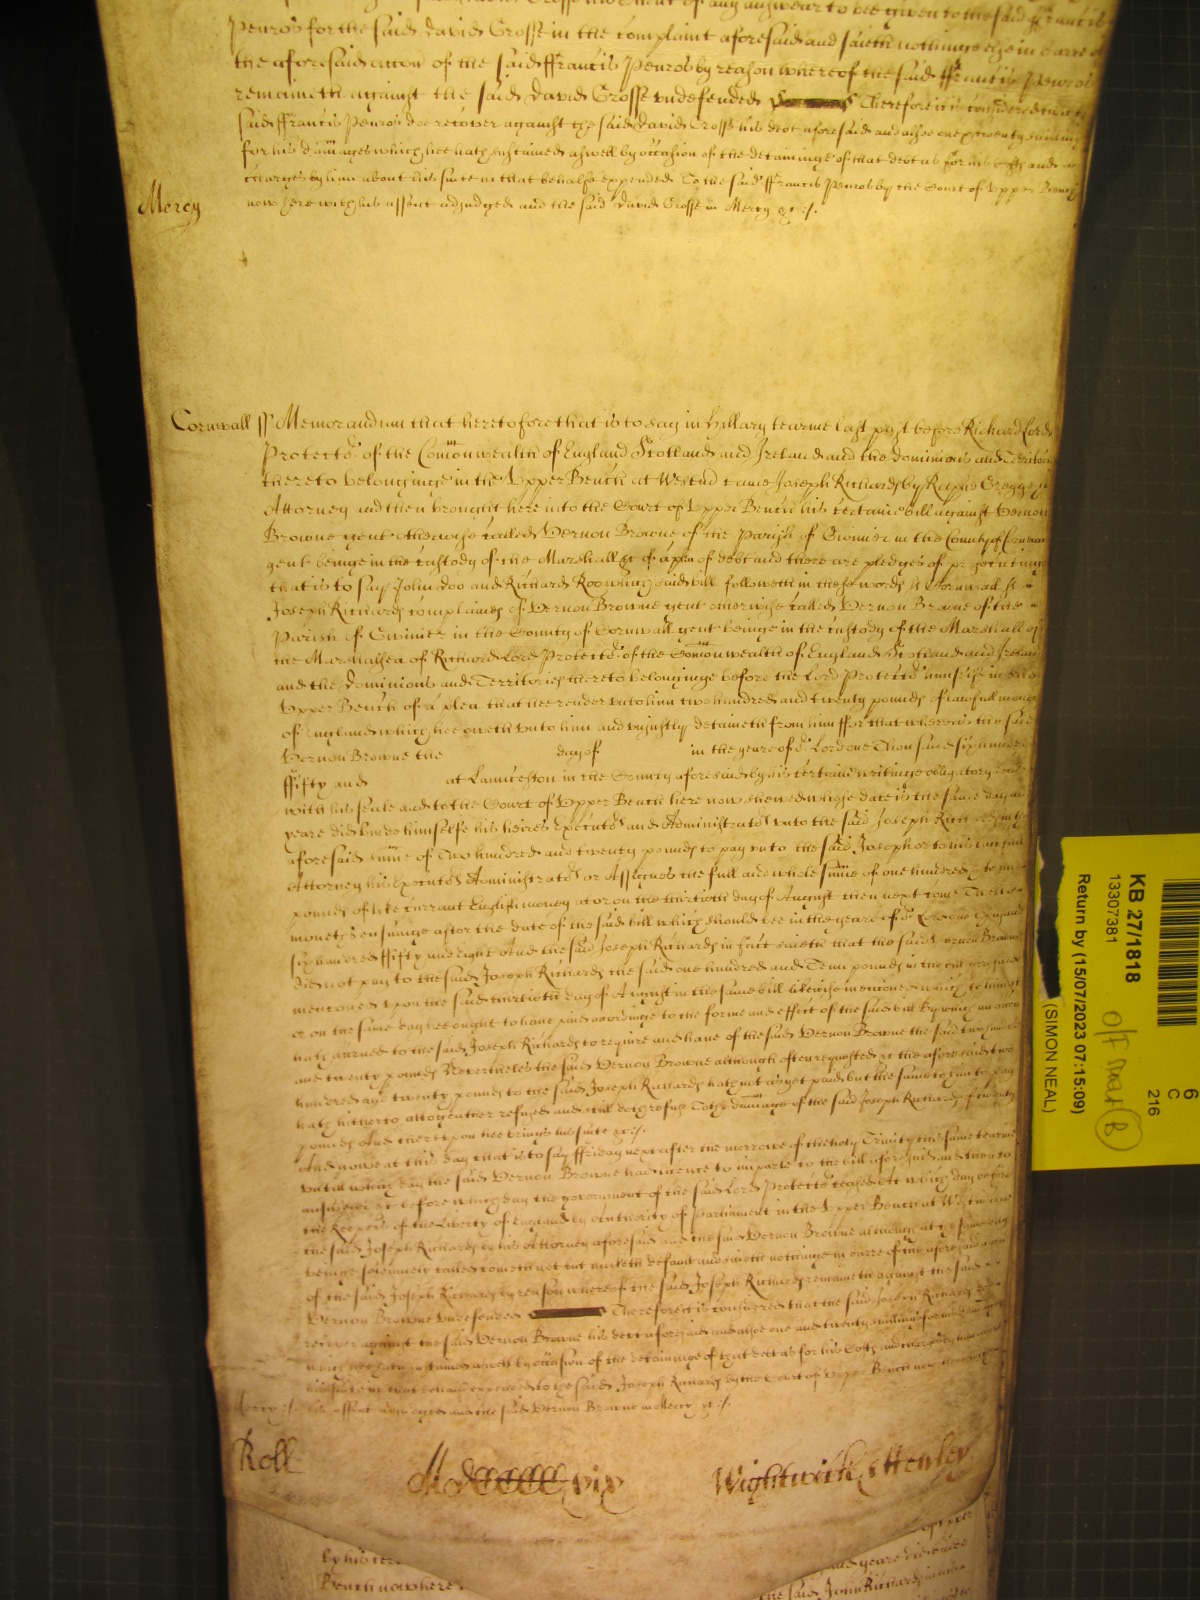 of any answear to bee given to the said ffrancis
Penros for the said David Grosse in the complaint aforesaid and saieth nothinge else in barre of
the aforesaid accon of the said ffrancis Penros by reason whereof the said ffrancis Penros
remaineth against the said David Grosse undefended Therefore it is considered that the
said ffrancis Penros doe recover against the said David Grosse his debt aforesaid and alsoe one and twenty shillings
for his damages which hee hath sustained aswell by occasion of the detaininge of that debt as for his costs and
charges by him about his suite in that behalfe expended To the said ffrancis Penros by the Court of Upper Bench
Mercy now here with his assent adjudged and the said David Grosse in Mercy &c
Cornwall ss Memorandum that heretofore that is to say in Hillary tearme last past before Richard Lord
Protector of the Comonwealth of England Scotland and Ireland and the dominions and Territories
thereto belonginge in the Upper Bench at Westm came Joseph Richards by Rufus Gregge his
Attorney and then brought here into the Court of Upper Bench his certaine bill against Vernon
Browne gent otherwise called Vernon Browne of the Parish of Gwinier in the County of Cornwall
gent beinge in the custody of the Marshall &c of a plea of debt and there are pledges of prosecutinge
that is to say John Doo and Richard Roo which said bill followeth in these words ss Cornwall ss
Joseph Richards complaines of Vernon Browne gent otherwise called Vernon Browne of the
Parish of Gwinier in the County of Cornwall gent beinge in the custody of the Marshall of
the Marshalsea of Richard Lord Protector of the Comonwealth of England Scotland and Ireland
and the Dominions and Territories thereto belonginge before the Lord Protector himselfe in the
Upper Bench of a plea that hee render unto him two hundred and twenty pounds of lawfull money
of England which hee oweth unto him and unjustly detaineth from him ffor that whereas the said
Vernon Browne the day of in the yeare of or Lord one Thousand six hundred
ffifty and at Launceston in the County aforesaid by his certaine writinge obligatory sealed
with his seale and to the Court of Upper Bench here now shewed whose date is the same day and
yeare did binde himselfe his heires Executors and Administrators unto the said Joseph Richards in the
aforesaid sume of Two hundred and twenty pounds to pay unto the said Joseph or to his certaine
Attorney his Executors Administrators or Assignes the full and whole sume of one hundred & tenn
pounds of like currant English money at or on the thirtieth day of August then next come Twelve
moneths ensuinge after the date of the said bill which should bee in the yeare of or Lord one thousand
six hundred ffifty and eight And the said Joseph Richards in fact saieth that the said Vernon Browne
did not pay to the said Joseph Richards the said one hundred and Tenn pounds in the bill aforesaid
mentioned upon the said thirtieth day of August in the same bill likewise mentioned which to him at
or on the same day hee ought to have paid accordinge to the forme and effect of the said bill By which an accon
hath accrued to the said Joseph Richards to require and have of the said Vernon Browne the said two hundred
and twenty pounds Neverthelesse the said Vernon Browne although often requested &c the aforesaid two
hundred and twenty pounds to the said Joseph Richards hath not as yet paid but the same to him to pay
hath hitherto altogeather refused and still doth refuse To the damage of the said Joseph Richards of twenty
pounds And thereupon hee brings his suite &c
And nowe at this day that is to say ffriday next after the morrowe of the holy Trinity this same tearme
untill which day the said Vernon Browne had licence to imparle to the bill aforesaid and then to
answear &c before which day the government of the said Lord Protector ceased At which day before
the Keepers of the Liberty of England by Authority of Parliament in the Upper Bench at Westm came
the said Joseph Richards by his Attorney aforesaid and the said Vernon Browne although at the same day
beinge solemnely called cometh not but maketh default and saieth nothinge in barre of the aforesaid accon
of the said Joseph Richards by reason whereof the said Joseph Richards remaineth against the said
Vernon Browne undefended Therefore it is considered that the said Joseph Richards doe
recover against the said Vernon Browne his debt aforesaid and alsoe one and twenty shillings for his damages
which hee hath sustained aswell by occasion of the detaininge of that debt as for his Costs and charges by him about
his suite in that behalfe expended to the said Joseph Richards by the Court of Upper Bench now here with
Mercy his assent adjudged and the said Vernon Browne in Mercy &c
Roll Wightwick & Henley
by his
Bench now here
and yeare did
the said John Richards
KB 27/1818
13307381
Return by (15/07/2023 07:15:09)
(SIMON NEAL)
6
C
216
B